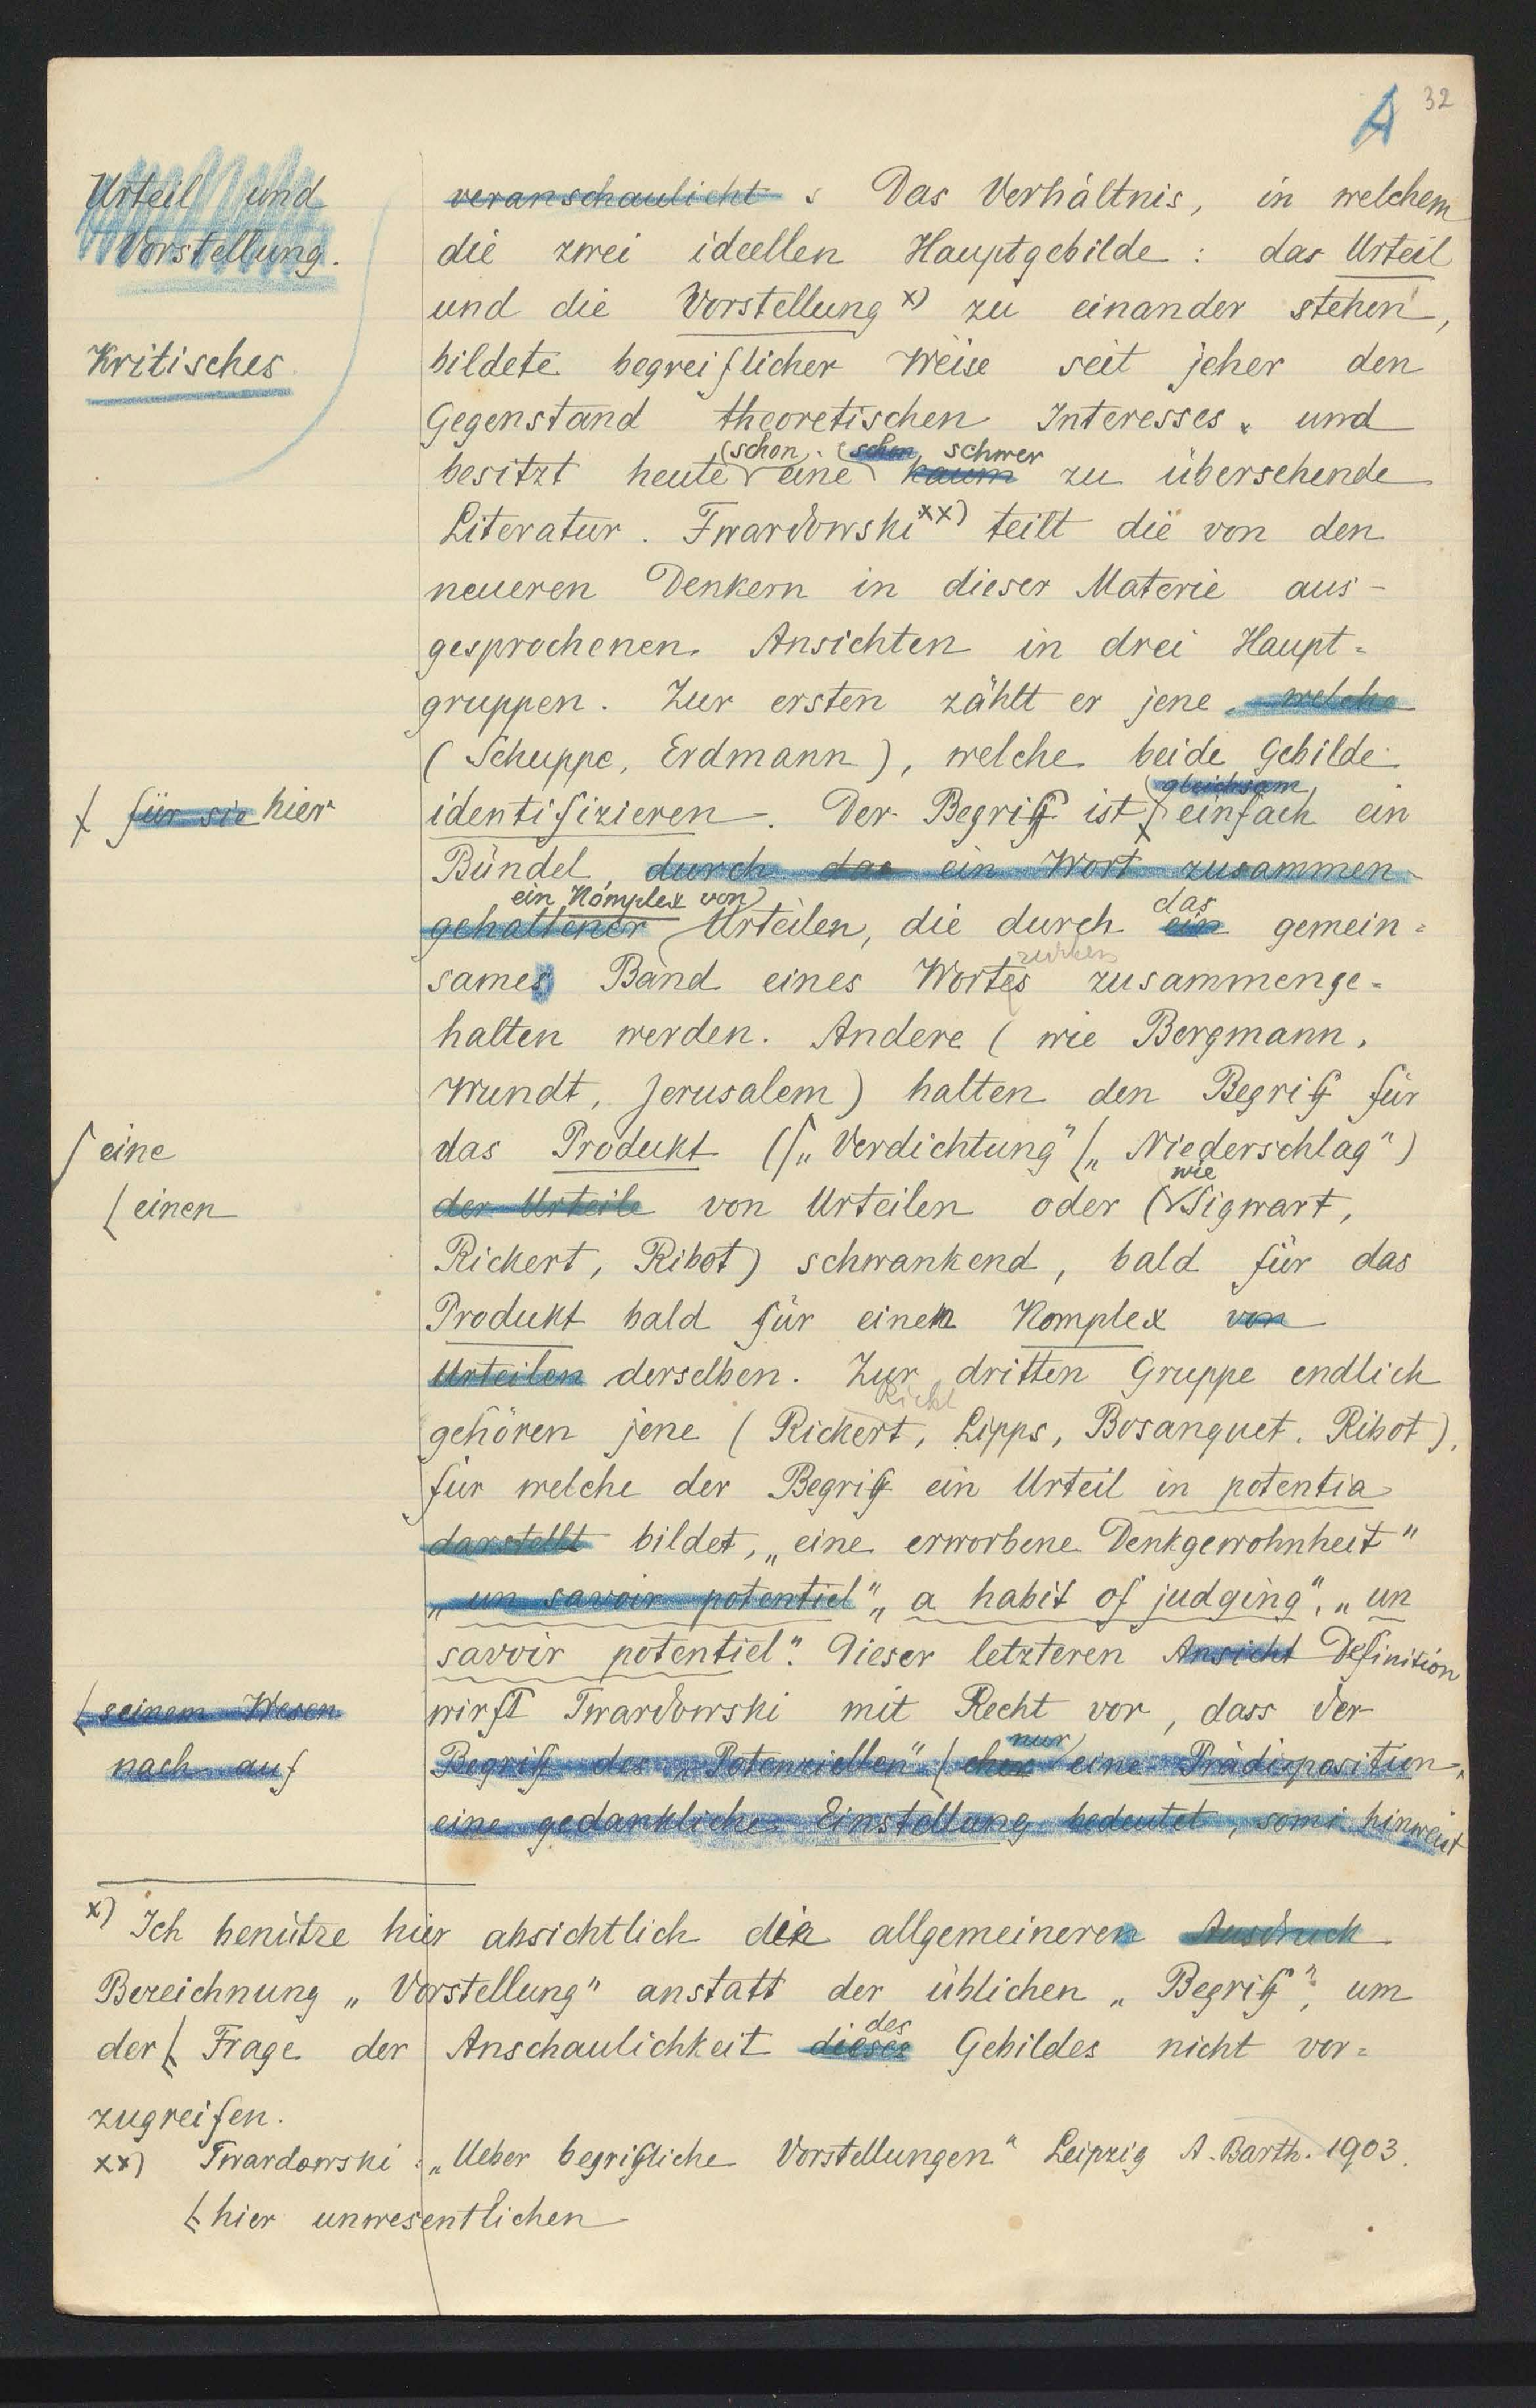 A 32
Urteil und
Vorstellung.
Kritisches
veranschaulicht. Das Verhältnis, in welchem
die zwei ideellen Hauptgebilde : das Urteil
und die Vorstellung x) zu einander stehen,
bildete begreiflicher Weise seit jeher den
Gegenstand theoretischen Interesses und
(schon (schon schwer
besitzt heute eine kaum zu übersehende
Literatur. Twardowski xx) teilt die von den
neueren Denkern in dieser Materie aus-
gesprochenen Ansichten in drei Haupt=
gruppen. Zur ersten zählt er jene, welche
(Schuppe, Erdmann), welche beide Gebilde
gleichsam
für sie hier
identifizieren. Der Begriff ist einfach ein
Bündel durch das ein Wort zusammen-
ein Komplex von das
gehaltener Urteilen, die durch ein gemein=
sames Band eines Wortes zusammenge=
halten werden. Andere (wie Bergmann,
Wundt, Jerusalem) halten den Begriff für
eine
das Produkt („Verdichtung" „Niederschlag")
wie
einen
der Urteile von Urteilen oder (Sigwart,
Rickert, Ribot) schwankend, bald für das
Produkt bald für einen Komplex von
Urteilen derselben. Zur dritten Gruppe endlich
gehören jene (Rickert, Lipps, Bosanquet, Ribot),
für welche der Begriff ein Urteil in potentia
darstellt bildet, „eine erworbene Denkgewohnheit"
„un savoir potentiel", „a habit of judging", „un
savoir potentiel". Dieser letzteren Ansicht Definition
seinem Wesen
wirft Twardowski mit Recht vor, dass der
nur
nach auf
Begriff des „Potenziellen" (eher eine Prädisposition,
eine gedankliche Einstellung bedeutet, somi hinweist
x) Ich benütze hier absichtlich die allgemeineren Ausdruck
Bezeichnung „Vorstellung" anstatt der üblichen „Begriff", um
des
der Frage der Anschaulichkeit dieses Gebildes nicht vor=
zugreifen.
xx) Twardowski : „Ueber begriffliche Vorstellungen" Leipzig A. Barth. 1903.
hier unwesentlichen